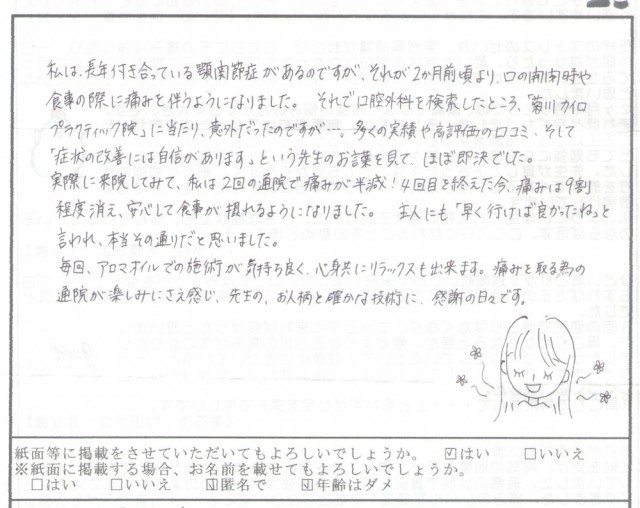 私は、長年付き合っている顎関節症があるのですが、それが2か月前頃より、口の開閉時や
食事の際に痛みを伴うようになりました。 それで口腔外科を検索したところ、「菊川カイロ
プラクティック院」に当たり、意外だったのですが…。多くの実績や高評価の口コミ、そして
「症状の改善には自信があります」という先生のお言葉を見て、ほぼ即決でした。
実際に来院してみて、私は2回の通院で痛みが半減!4回目を終えた今、痛みは9割
程度消え、安心して食事が摂れるようになりました。 主人にも「早く行けば良かったね」と
言われ、本当その通りだと思いました。
毎回、アロマオイルでの施術が気持ち良く、心身共にリラックスも出来ます。痛みを取る為の
通院が楽しみにさえ感じ、先生の、お人柄と確かな技術に、感謝の日々です。
紙面等に掲載をさせていただいてもよろしいでしょうか。 ☑はい □いいえ
※紙面に掲載する場合、お名前を載せてもよろしいでしょうか。
□はい □いいえ ☑匿名で ☑年齢はダメ